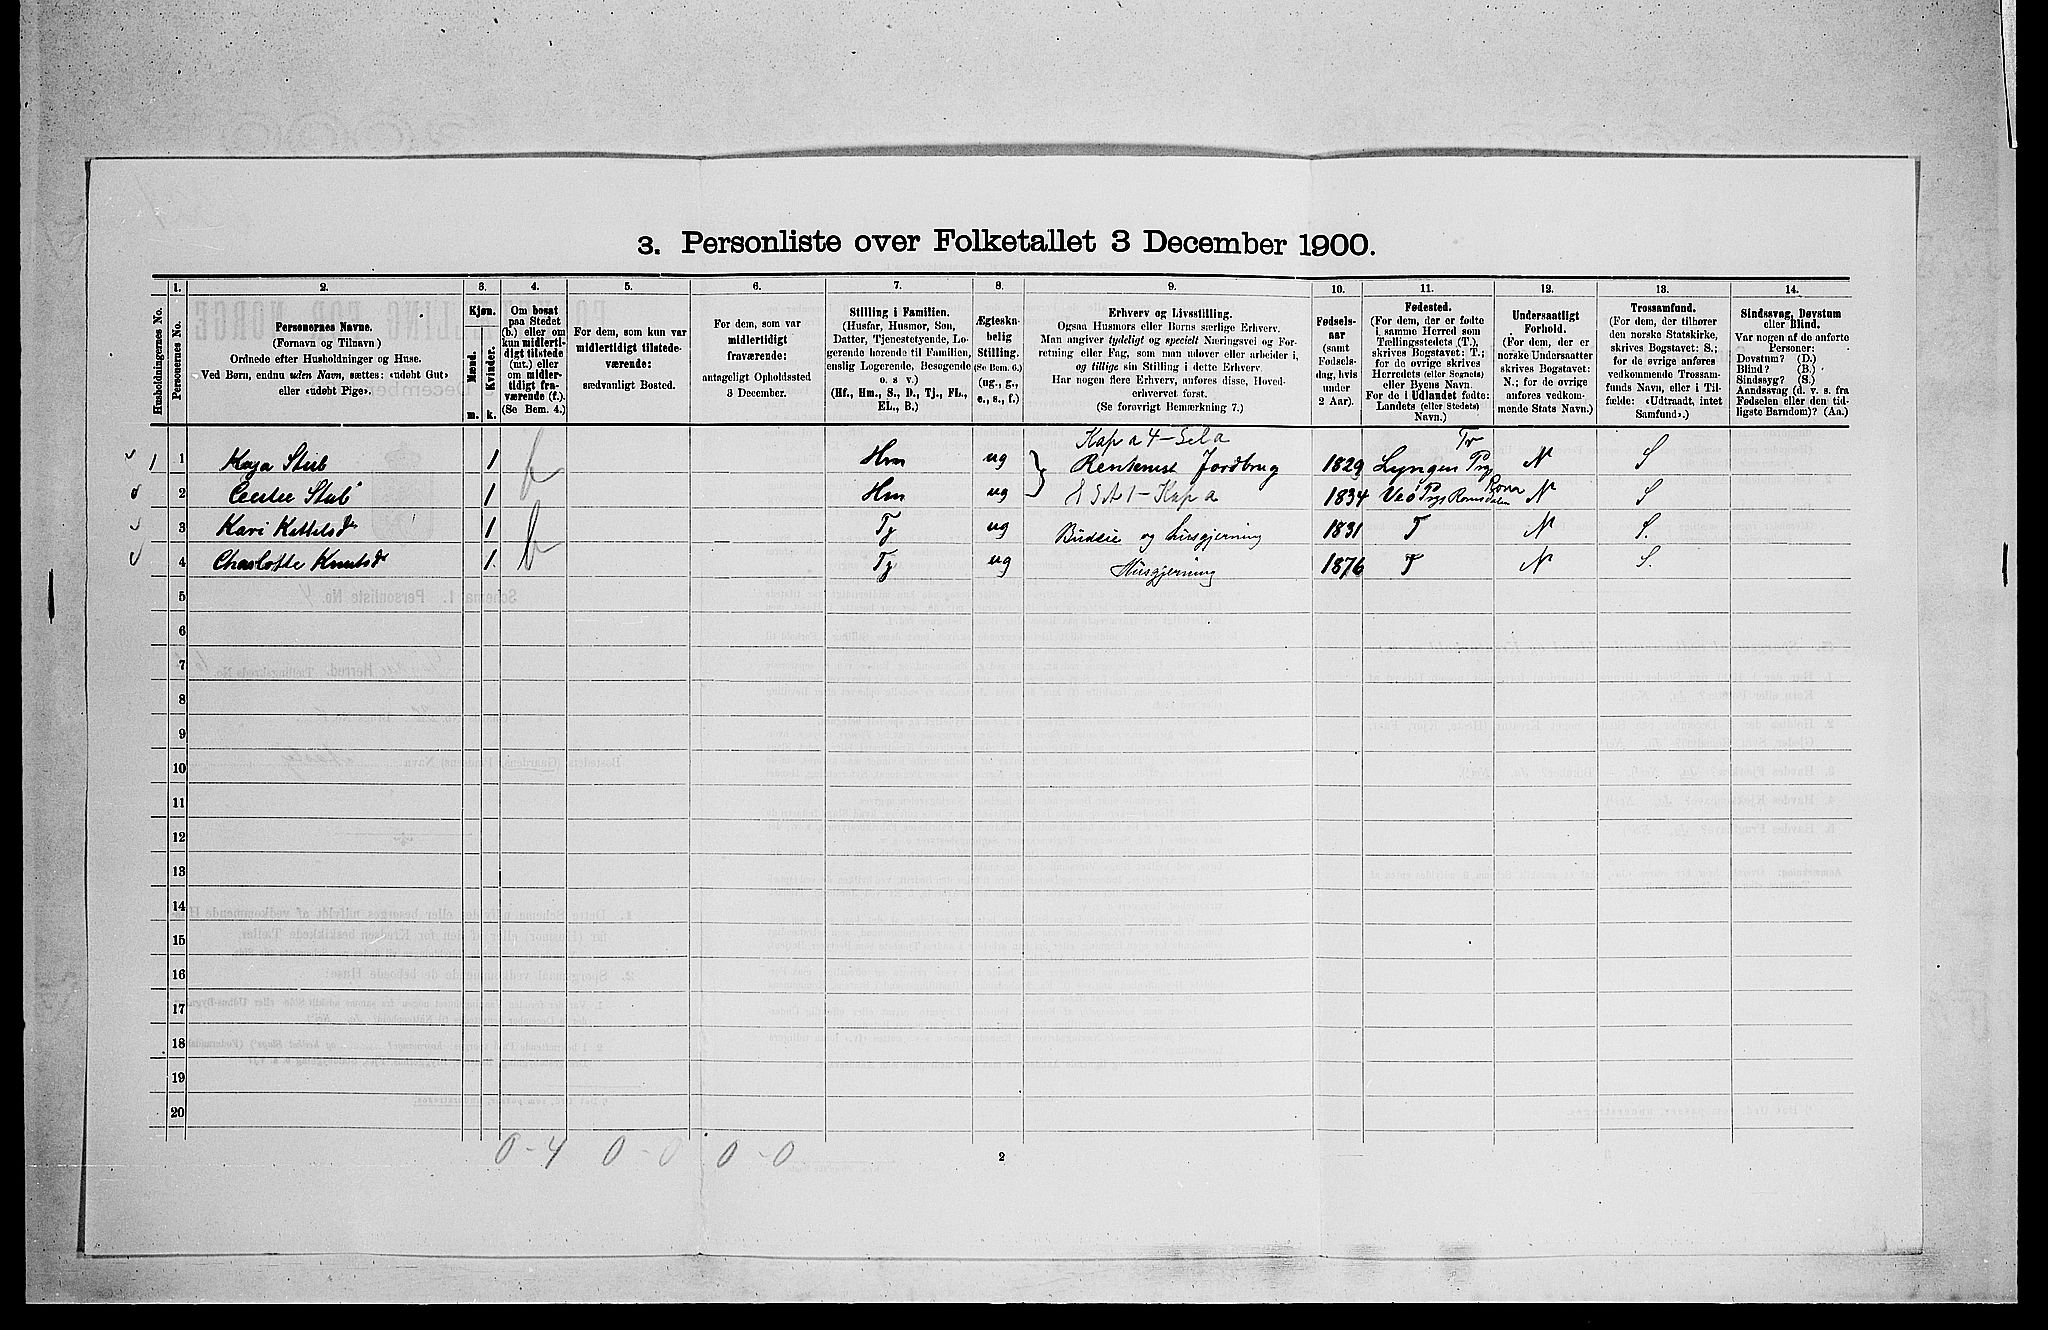 3. Personliste over Folketallet 3 December 1900.
Husholdningernes No.
1.
Personernes No.
2.
Personernes Navne.
(Fornavn og Tilnavn)
Ordnede efter Husholdninger og Huse.
Ved Børn, endnu uden Navn, sættes: «udøbt Gut»
eller «udøbt Pige».
3.
Kjøn.
Mænd.
Kvinder.
m. k.
4.
Om bosat
paa Stedet
(b.) eller om
kun midlerti-
digt tilstede
(mt.) eller
om midler-
tidigt fra-
værende (f.).
(Se Bem. 4.)
5.
For dem, som kun var
midlertidigt tilstede-
værende:
sædvanligt Bosted.
6.
For dem, som var
midlertidigt
fraværende:
antageligt Opholdssted
3 December.
7.
Stilling i Familien.
(Husfar, Husmor, Søn,
Datter, Tjenestetyende, Lo-
gerende hørende til Familien,
enslig Logerende, Besøgende
o. s v.)
(Hf., Hm., S., D., Tj., FL.,
EL., B.)
8.
Ægteska-
belig
Stilling.
(Se Bem. 6.)
(ug., g.,
e., s., f.)
9.
Erhverv og Livsstilling.
Ogsaa Husmors eller Børns særlige Erhverv.
Man angiver tydeligt og specielt Næringsvei og For-
retning eller Fag, som man udøver eller arbeider i,
og tillige sin Stilling i dette Erhverv.
Har nogen flere Erhverv, anføres disse, Hoved-
erhvervet først.
(Se forøvrigt Bemærkning 7.)
10.
Fødsels-
aar
(samt
Fødsels-
dag, hvis
under
2 Aar).
11.
Fødested.
(For dem, der er fødte
i samme Herred som
Tællingsstedets (T.),
skrives Bogstavet: T.;
for de øvrige skrives
Herredets (eller Sognets)
eller Byens Navn.
For de i Udlandet fødte:
Landets (eller Stedets)
Navn.)
12.
Undersaatligt
Forhold.
(For dem, der er
norske Undersaatter
skrives Bogstavet:
N.; for de øvrige
anføres vedkom-
mende Stats Navn.)
13.
Trossamfund.
(For dem, der tilhører
den norske Statskirke,
skrives Bogstavet: S.;
for de øvrige anføres
vedkommende Trossam-
funds Navn, eller i Til-
fælde: «Udtraadt, intet
Samfund».)
14.
Sindssvag, Døvstum
eller Blind.
Var nogen af de anførte
Personer:
Døvstum? (D.)
Blind? (B.)
Sindssyg? (S.)
Aandssvag (d. v. s. fra
Fødselen eller den tid-
ligste Barndom)? (Aa.)
Kap a 4 - Sel a
Tr
1 1 Kaja Stub 1 b Hm ug Rentenist Jordbrug 1829 Lyngen N S
2 Stub 1 Hm ug Kap a 1834 Veø Romsdalen N S
3 Kari Kittelsdr 1 b Tj ug Budeie og husgjerning 1831 T N S.
4 Charlotte Knutsdr 1. Tj ug Husgjerning 1876 T N S.
5
6
7
8
9
10
11
12
13
14
15
16
17
18
19
20
0 - 4 0 - 0 0 - 0
2